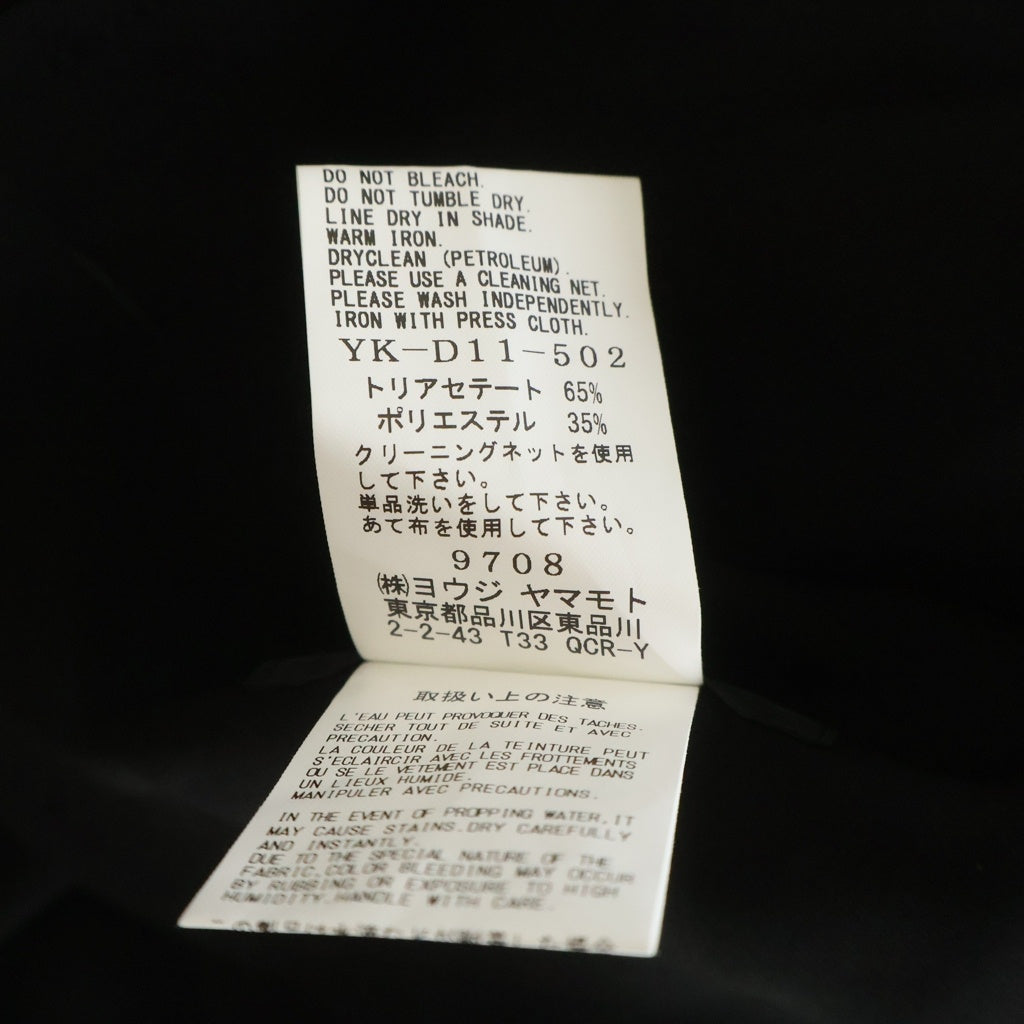 DO NOT BLEACH.
DO NOT TUMBLE DRY.
LINE DRY IN SHADE.
WARM IRON.
DRYCLEAN (PETROLEUM).
PLEASE USE A CLEANING NET.
PLEASE WASH INDEPENDENTLY.
IRON WITH PRESS CLOTH.
YK-D11-502
トリアセテート 65%
ポリエステル 35%
クリーニングネットを使用
して下さい。
単品洗いをして下さい。
あて布を使用して下さい。
9708
㈱ヨウジ ヤマモト
東京都品川区東品川
2-2-43 T33 QCR-Y
取扱い上の注意
L'EAU PEUT PROVOQUER DES TACHES.
SECHER TOUT DE SUITE ET AVEC
PRECAUTION.
LA COULEUR DE LA TEINTURE PEUT
S'ECLAIRCIR AVEC LES FROTTEMENTS
OU SE LE VETEMENT EST PLACE DANS
UN LIEUX HUMIDE.
MANIPULER AVEC PRECAUTIONS.
IN THE EVENT OF PROPPING WATER,IT
MAY CAUSE STAINS.DRY CAREFULLY
AND INSTANTLY.
DUE TO THE SPECIAL NATURE OF THE
FABRIC,COLOR BLEEDING MAY OCCUR
BY RUBBING OR EXPOSURE TO HIGH
HUMIDITY.HANDLE WITH CARE.